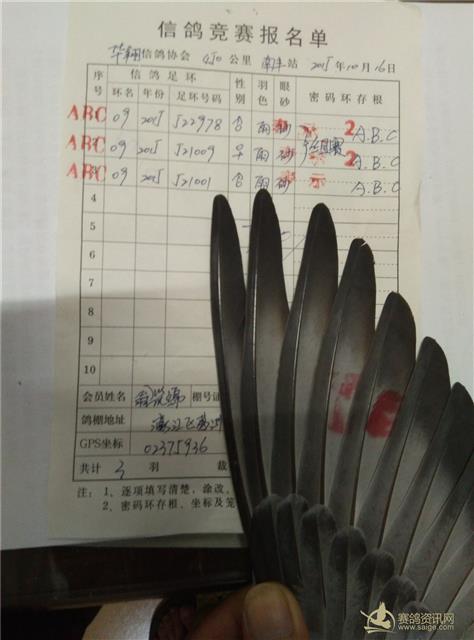 信鸽竞赛报名单
华翔信鸽协会 450公里 南丰站 2015年10月16日
序号 信鸽足环 性别 羽色 眼砂 密码环存根
环名 年份 足环号码
ABC 09 2015 522978 雨 2 A.B.C
ABC 09 2015 521009 雨 砂 2 A.B.C
ABC 09 2015 521001 雨 砂 A.B.C
4
5
6
7
8
9
10
会员姓名 棚号证
鸽棚地址
GPS坐标 02375936
共计 3 羽 裁
注：1、逐项填写清楚，涂改、
2、密码环存根、坐标及笼
赛鸽资讯网
www.saige.com